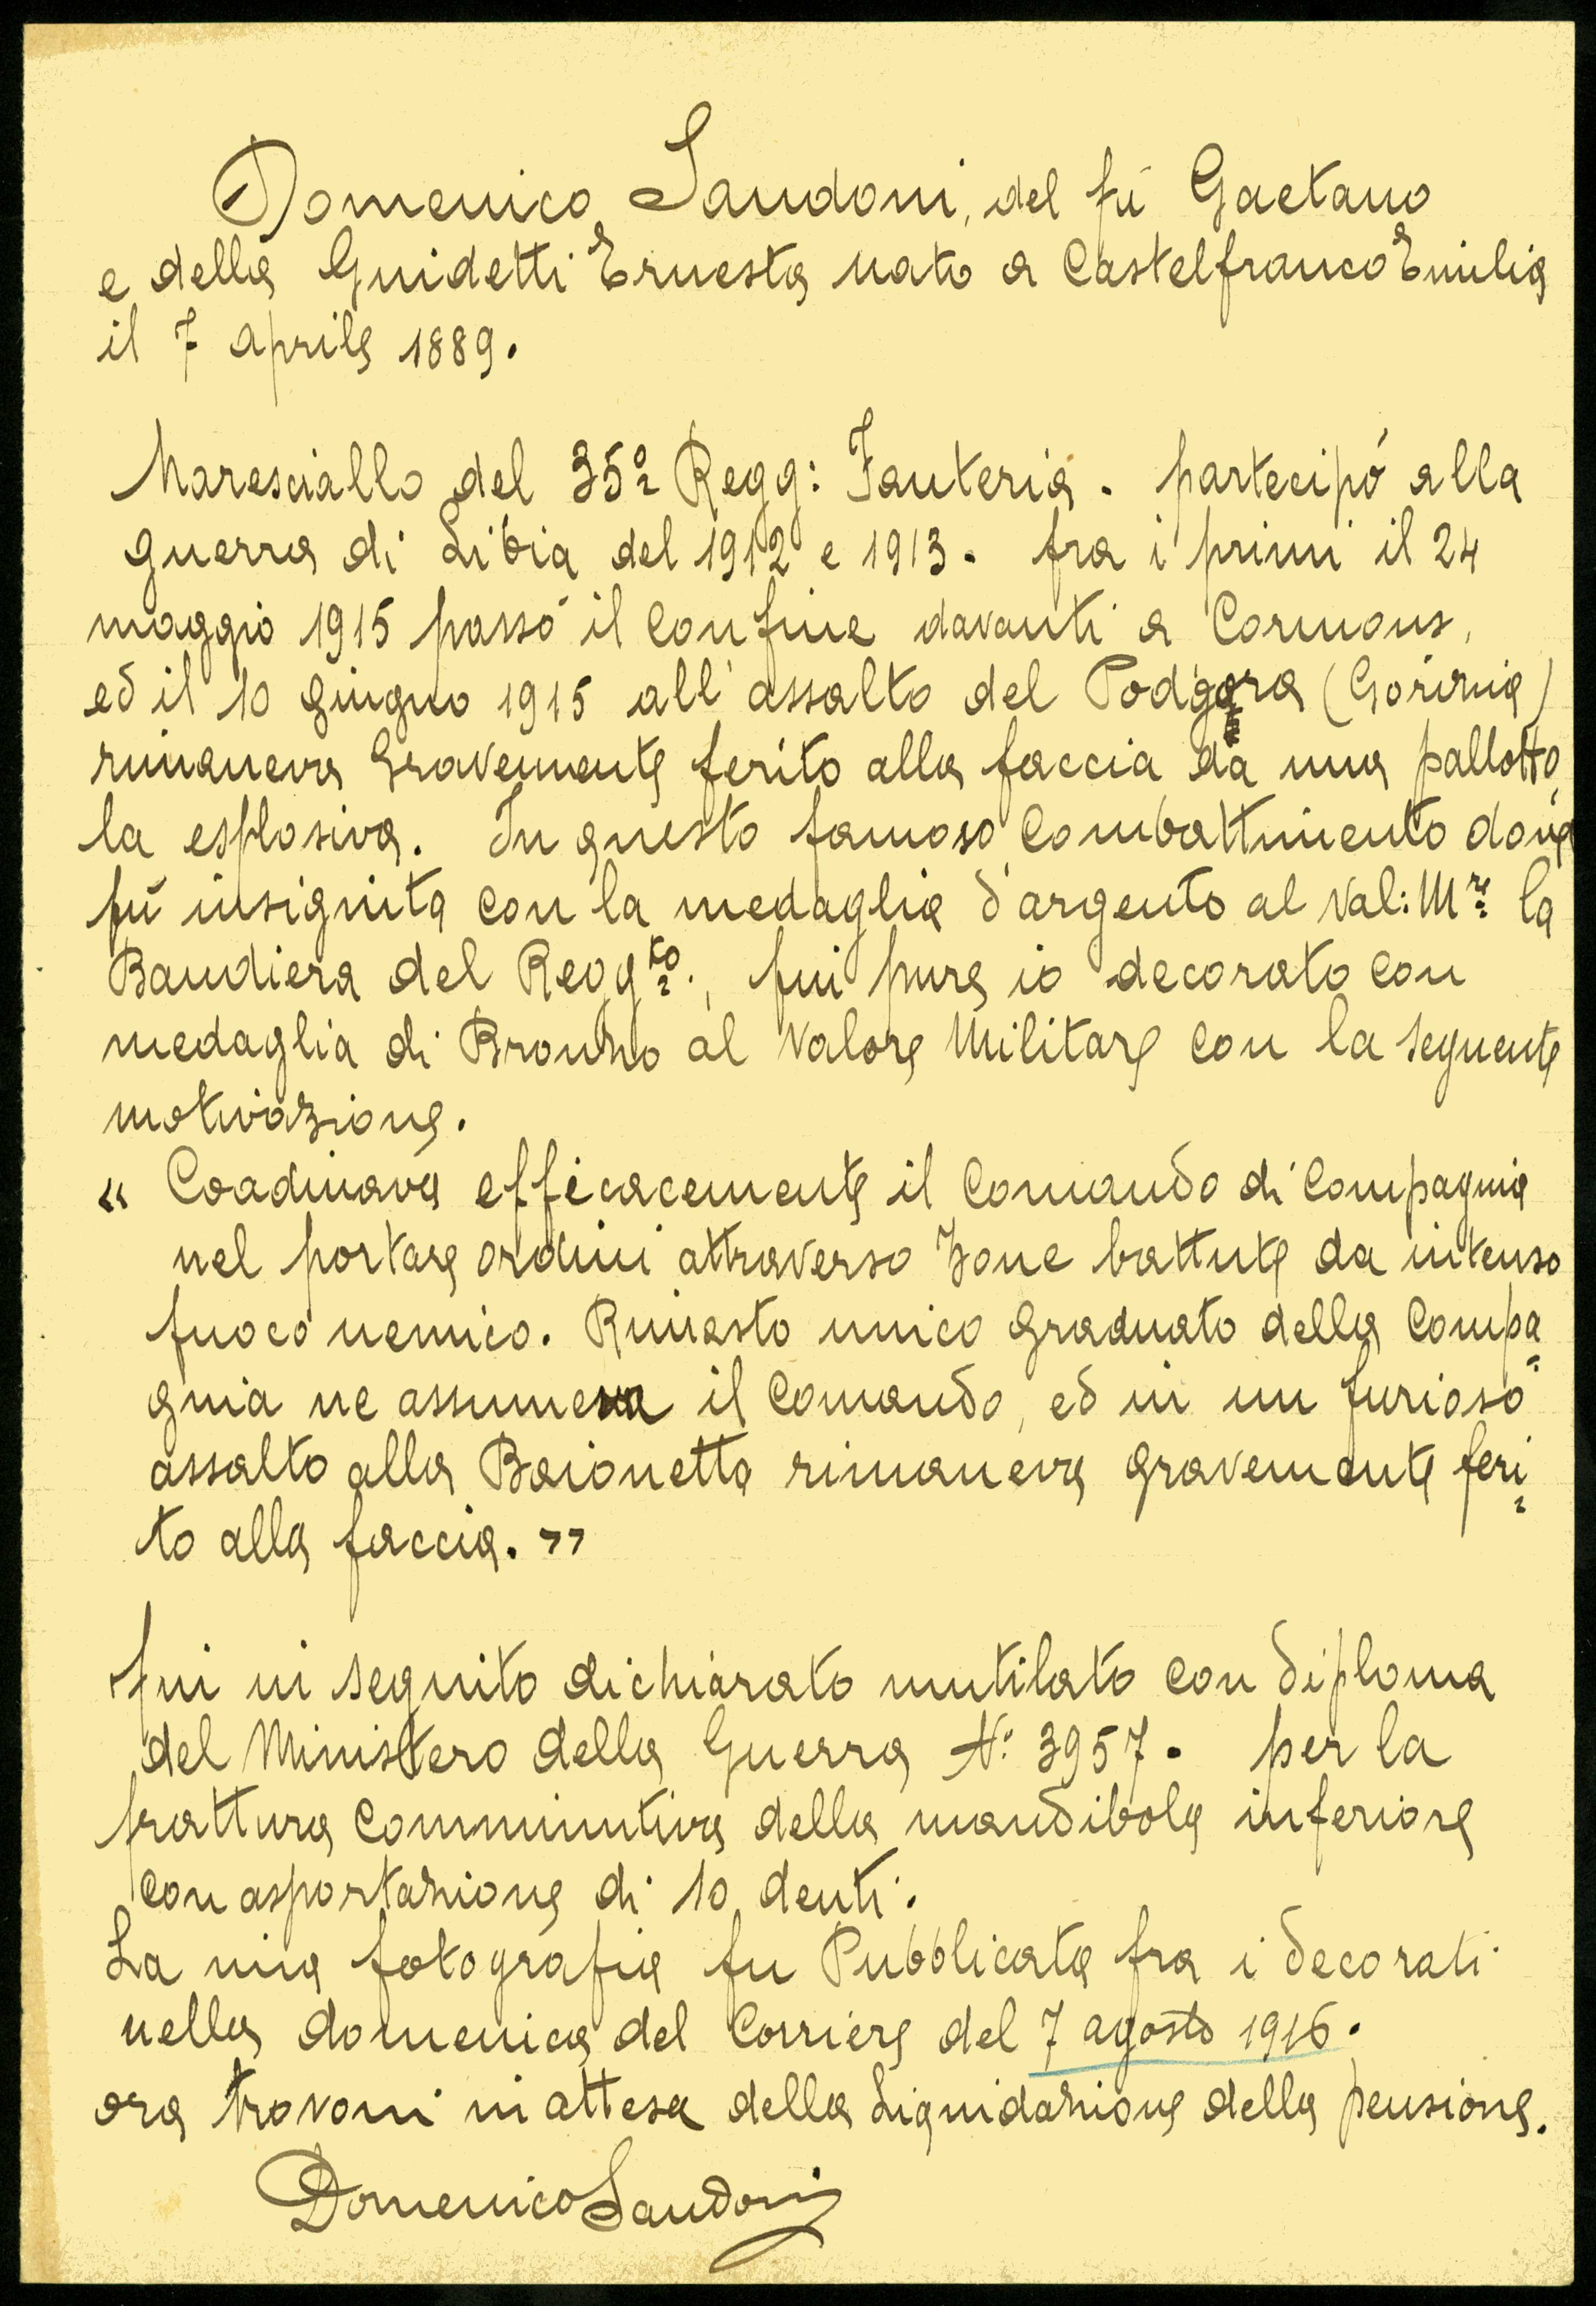 Domenico Sandoni, del fù Gaetano
e della Guidetti Ernesta nato a Castelfranco Emilia
il 7 aprile 1889.
Maresciallo del 35º Regg: Fanteria. partecipó alla
guerra di Libia del 1912 e 1913. fra i primi il 24
maggio 1915 passó il confine davanti a Cormons,
ed il 10 giugno 1915 all'assalto del Podgora (Gorizia)
rimaneva gravemente ferito alla faccia da una pallotto
la esplosiva. In questo famoso combattimento dove
fù insignita con la medaglia d'argento al Val: Mre la
Bandiera del Reggto., fui pure io decorato con
medaglia di Bronzo al Valore Militare con la seguente
motivazione.
« Coadiuava efficacemente il Comando di Compagnia
nel portare ordini attraverso zone battute da intenso
fuoco nemico. Rimasto unico graduato della Compa=
gnia ne assumeva il Comando, ed in un furioso
assalto alla Baionetta rimaneva gravemente feri=
to alla faccia. »
fui in seguito dichiarato mutilato con diploma
del Ministero della Guerra Nº 3957. per la
frattura comminutiva della mandibola inferiore
con asportazione di 10 denti.
La mia fotografia fu Pubblicata fra i decorati
nella domenica del Corriere del 7 agosto 1916.
ora trovomi in attesa della Liquidazione della pensione.
Domenico Sandoni